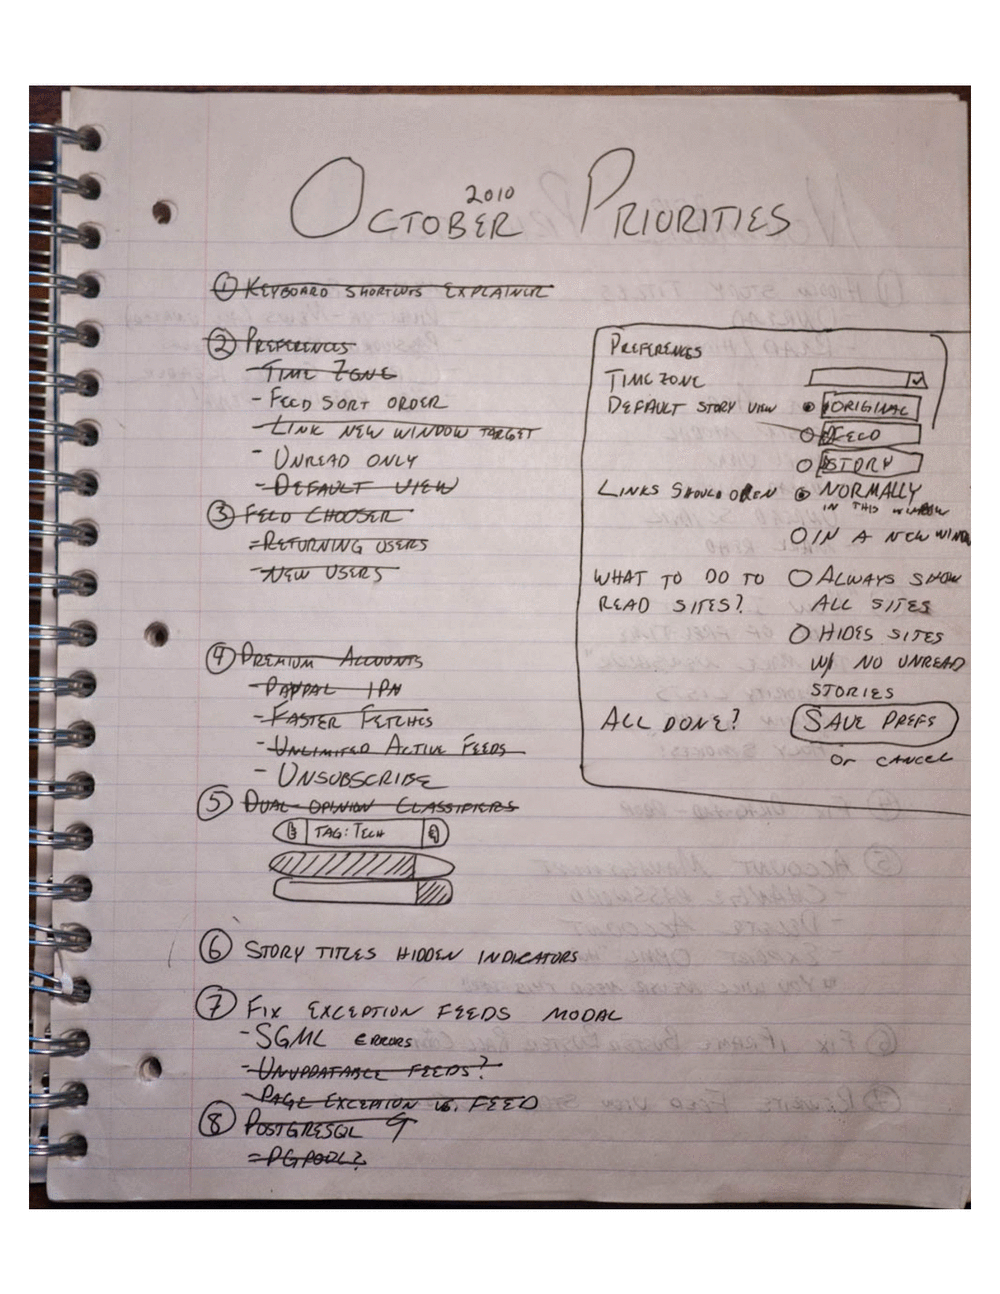 2010
OCTOBER PRIORITIES
① KEYBOARD SHORTCUTS EXPLAINER
② PREFERENCES
- TIME ZONE
- FEED SORT ORDER
- LINK NEW WINDOW TARGET
- UNREAD ONLY
- DEFAULT VIEW
③ FEED CHOOSER
- RETURNING USERS
- NEW USERS
④ PREMIUM ACCOUNTS
- PAYPAL IPN
- FASTER FETCHES
- UNLIMITED ACTIVE FEEDS
- UNSUBSCRIBE
⑤ DUAL-OPINION CLASSIFIERS
TAG: TECH
⑥ STORY TITLES HIDDEN INDICATORS
⑦ FIX EXCEPTION FEEDS MODAL
- SGML ERRORS
- UNUPDATABLE FEEDS?
- PAGE EXCEPTION VS. FEED
⑧ POSTGRESQL 9
- PGPOOL?
PREFERENCES
TIME ZONE
DEFAULT STORY VIEW ORIGINAL
FEED
STORY
LINKS SHOULD OPEN NORMALLY
IN THIS WINDOW
IN A NEW WINDO
WHAT TO DO TO ALWAYS SHOW
READ SITES? ALL SITES
HIDES SITES
W/ NO UNREAD
STORIES
ALL DONE? SAVE PREFS
or CANCEL